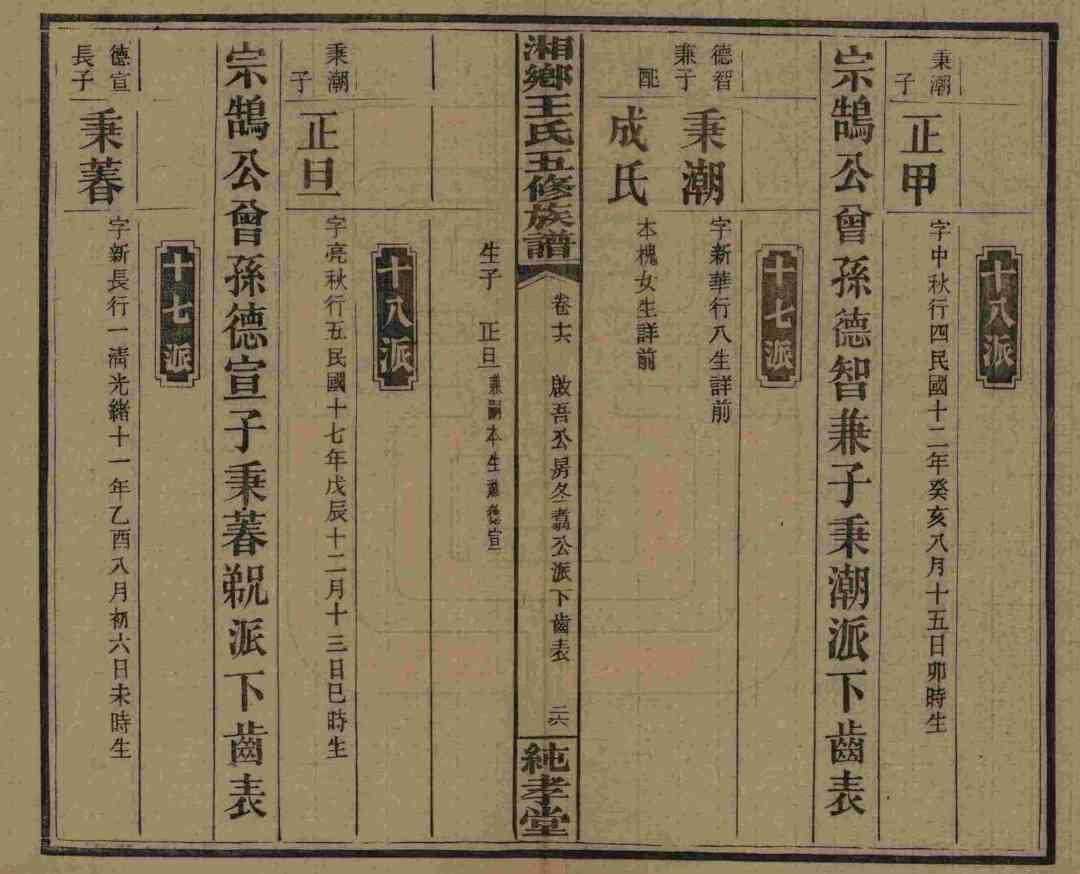 十八派
秉潮子
正甲
字中秋行四民國十二年癸亥八月十五日卯時生
宗鵠公曾孫德智兼子秉潮派下齒表
十七派
德智兼子
秉潮
字新華行八生詳前
配
成氏
本槐女生詳前
湘鄉王氏五修族譜
卷十六
啟吾公房冬翥公派下齒表
二六
純孝堂
生子 正旦兼嗣本生兼德宣
十八派
秉潮子
正旦
字亮秋行五民國十七年戊辰十二月十三日巳時生
宗鵠公曾孫德宣子秉萶派下齒表
十七派
德宣長子
秉萶
字新長行一清光緒十一年乙酉八月初六日未時生